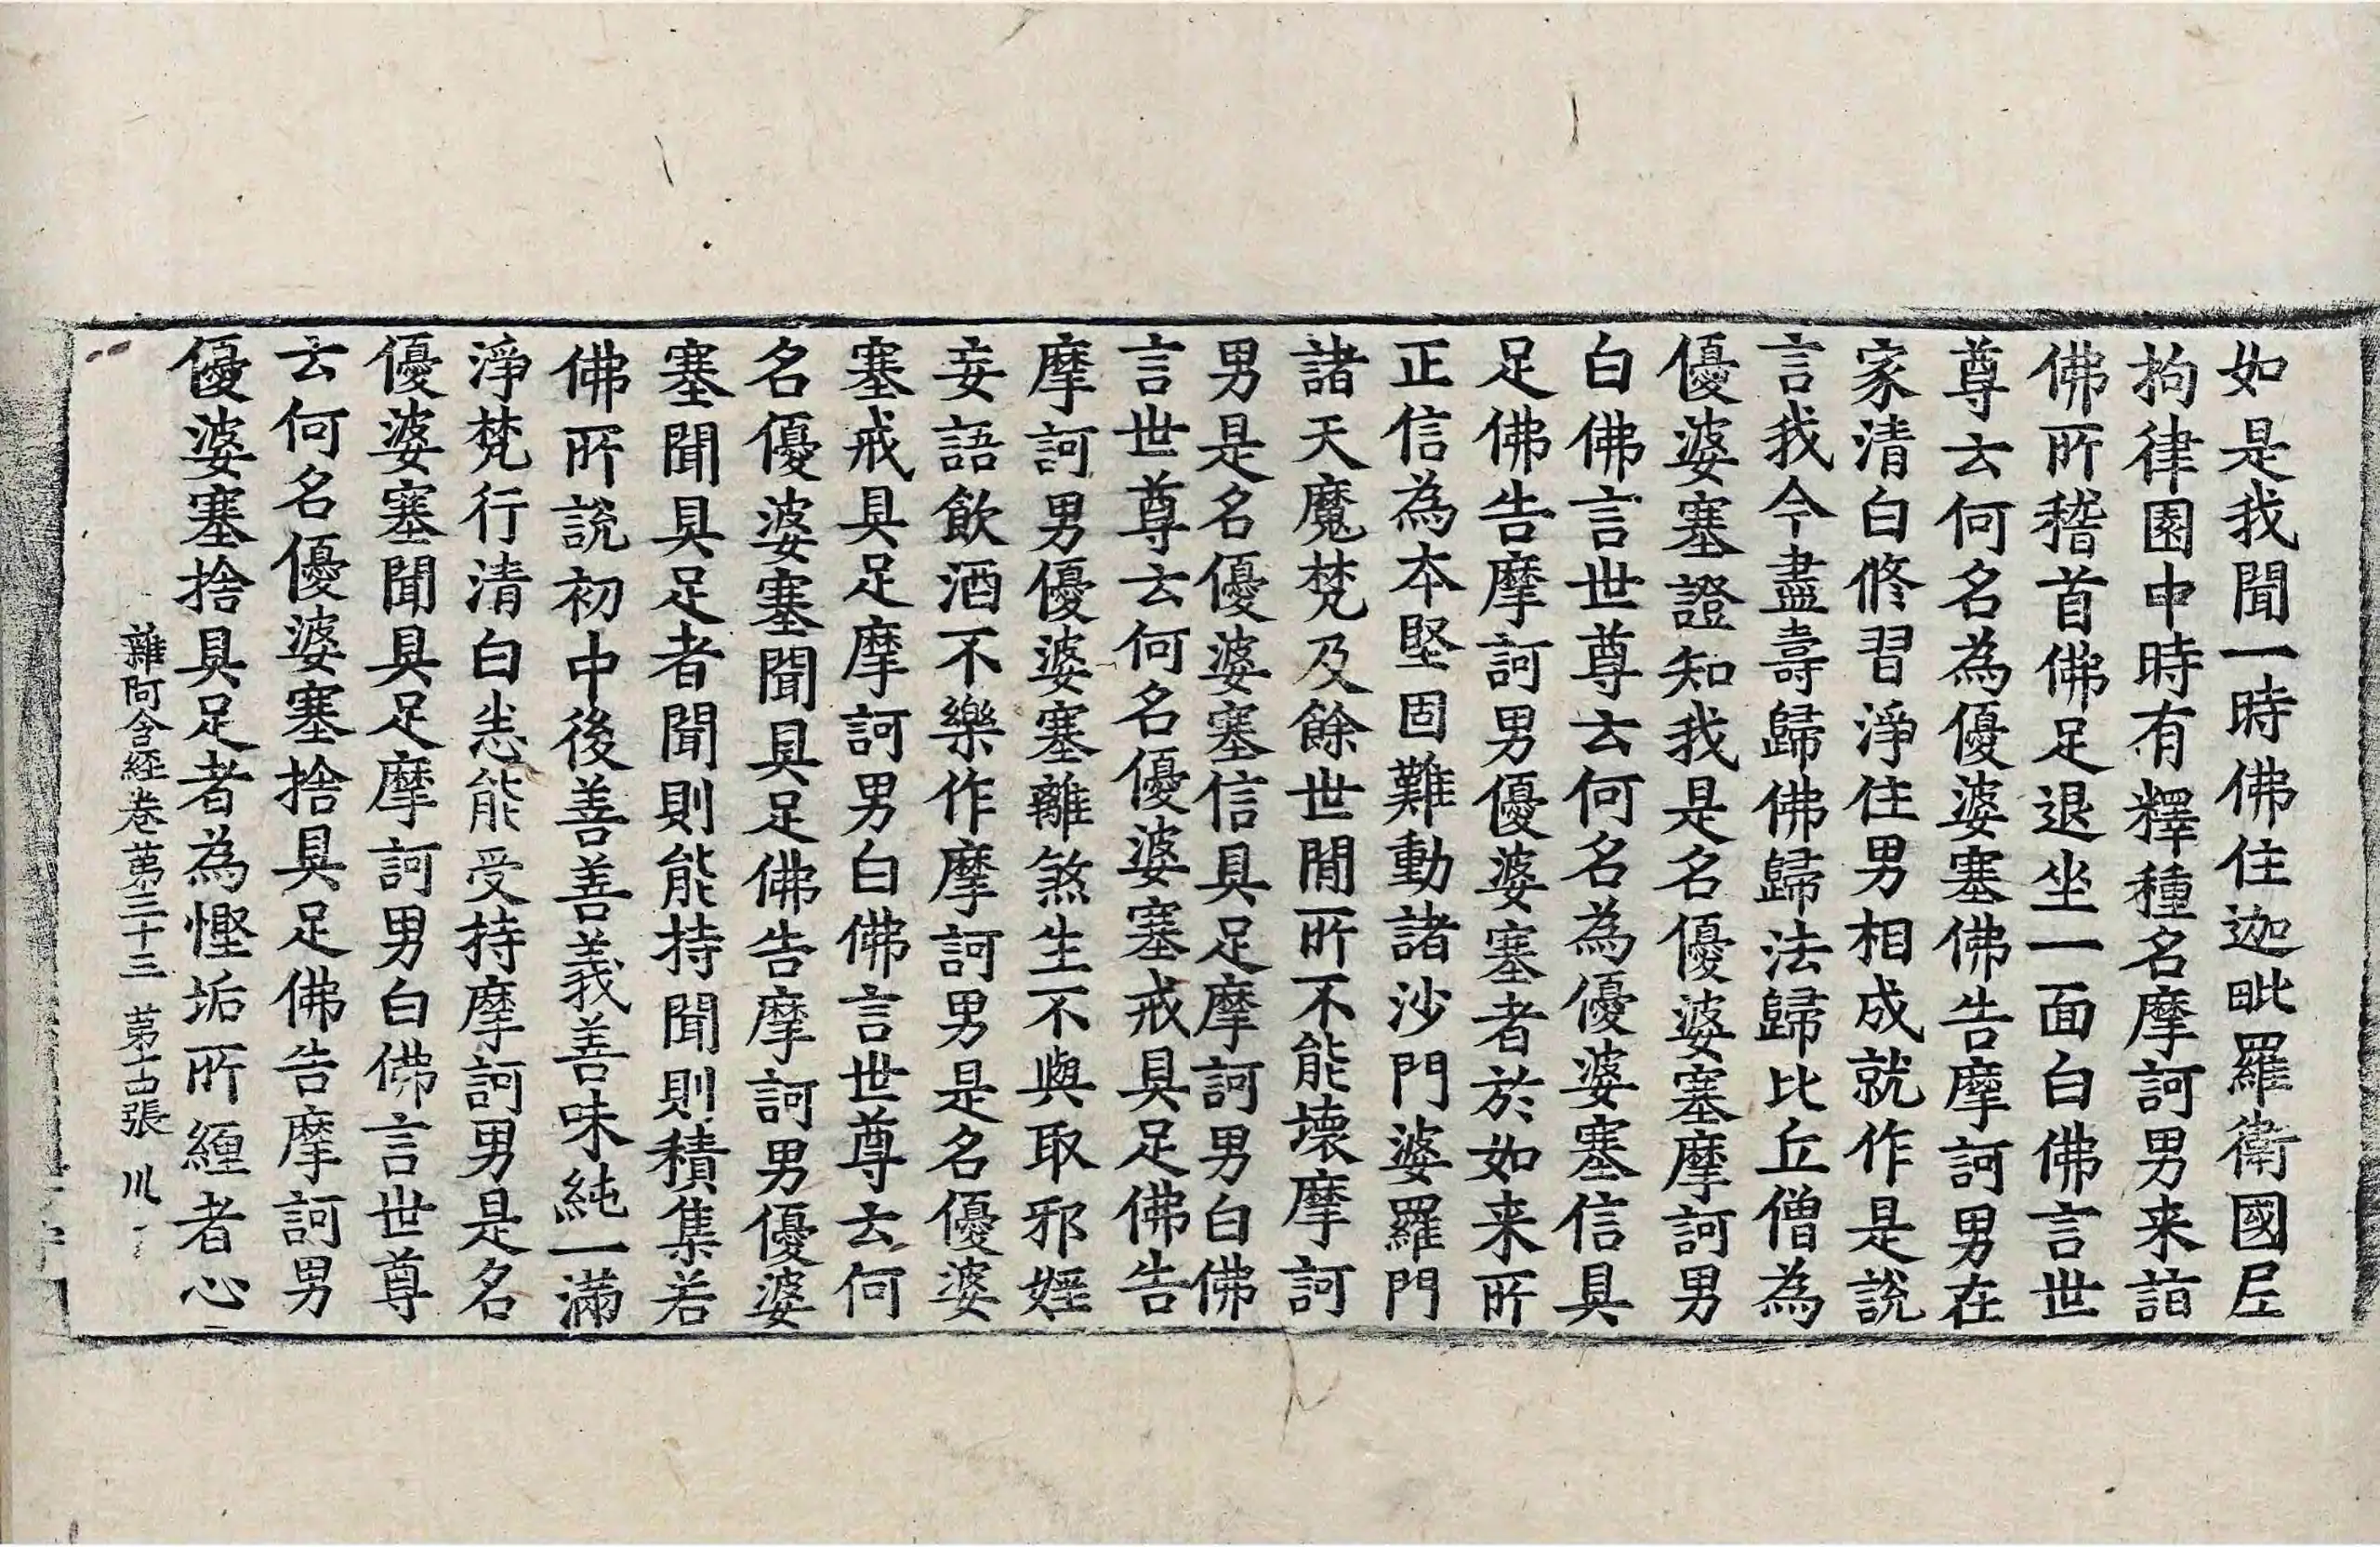 如是我聞一時佛住迦毗羅衛國尼
拘律園中時有釋種名摩訶男来詣
佛所稽首佛足退坐一面白佛言世
尊云何名為優婆塞佛告摩訶男在
家清白修習淨住男相成就作是說
言我今盡壽歸佛歸法歸比丘僧為
優婆塞證知我是名優婆塞摩訶男
白佛言世尊云何名為優婆塞信具
足佛告摩訶男優婆塞者於如来所
正信為本堅固難動諸沙門婆羅門
諸天魔梵及餘世間所不能壞摩訶
男是名優婆塞信具足摩訶男白佛
言世尊云何名優婆塞戒具足佛告
摩訶男優婆塞離煞生不與取邪婬
妄語飲酒不樂作摩訶男是名優婆
塞戒具足摩訶男白佛言世尊云何
名優婆塞聞具足佛告摩訶男優婆
塞聞具足者聞則能持聞則積集若
佛所說初中後善善義善味純一滿
淨梵行清白悉能受持摩訶男是名
優婆塞聞具足摩訶男白佛言世尊
云何名優婆塞捨具足佛告摩訶男
優婆塞捨具足者為慳垢所纏者心
雜阿含経卷苐三十三 苐十古張 川